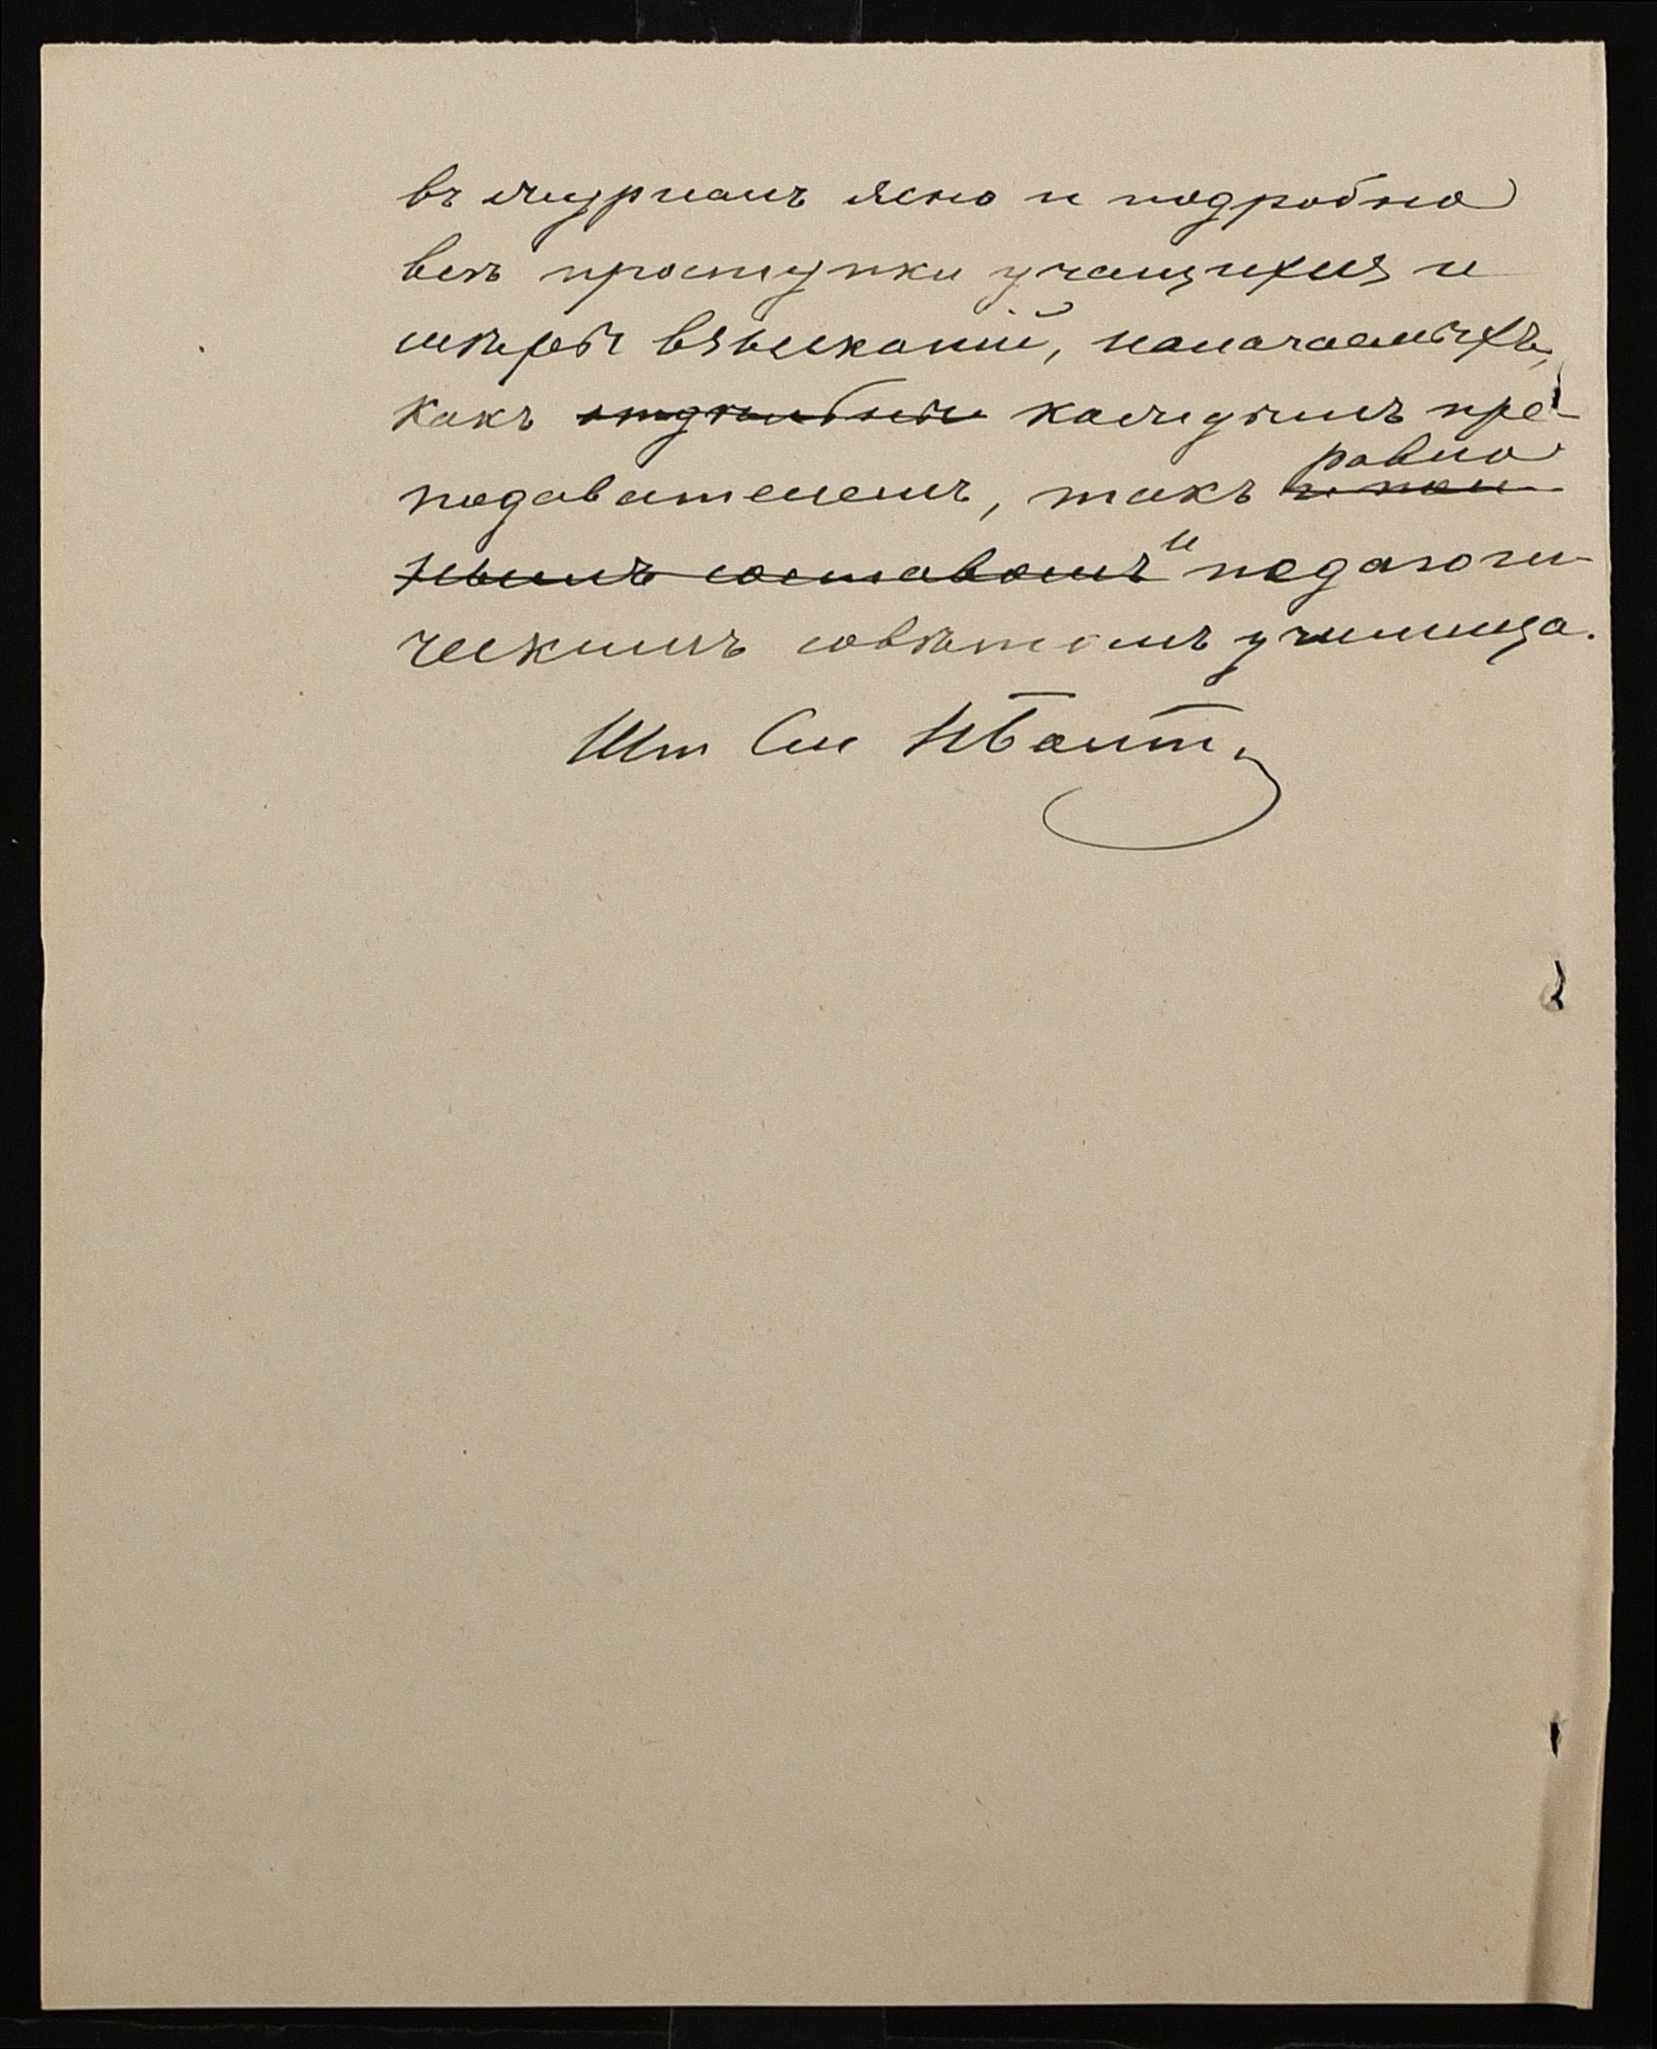 въ журналъ ясно и подробно
всѣ проступки учащихся и
мѣры взысканій, назначаемыхъ,
какъ отдѣльно каждымъ пре-
подавателемъ, такъ и пол-
равно
нымъ составомъ и педагоги-
ческимъ совѣтомъ училища.
Шт См